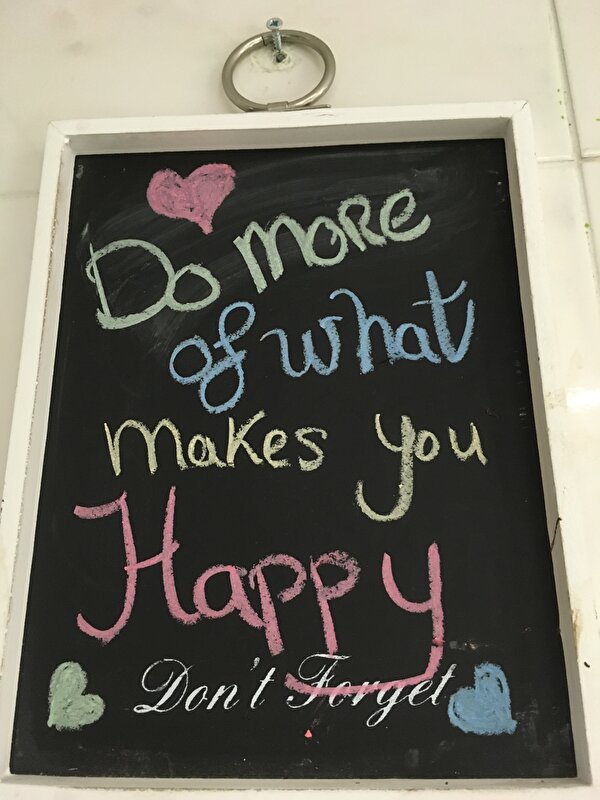 Do more
of what
makes you
Happy
Don't Forget